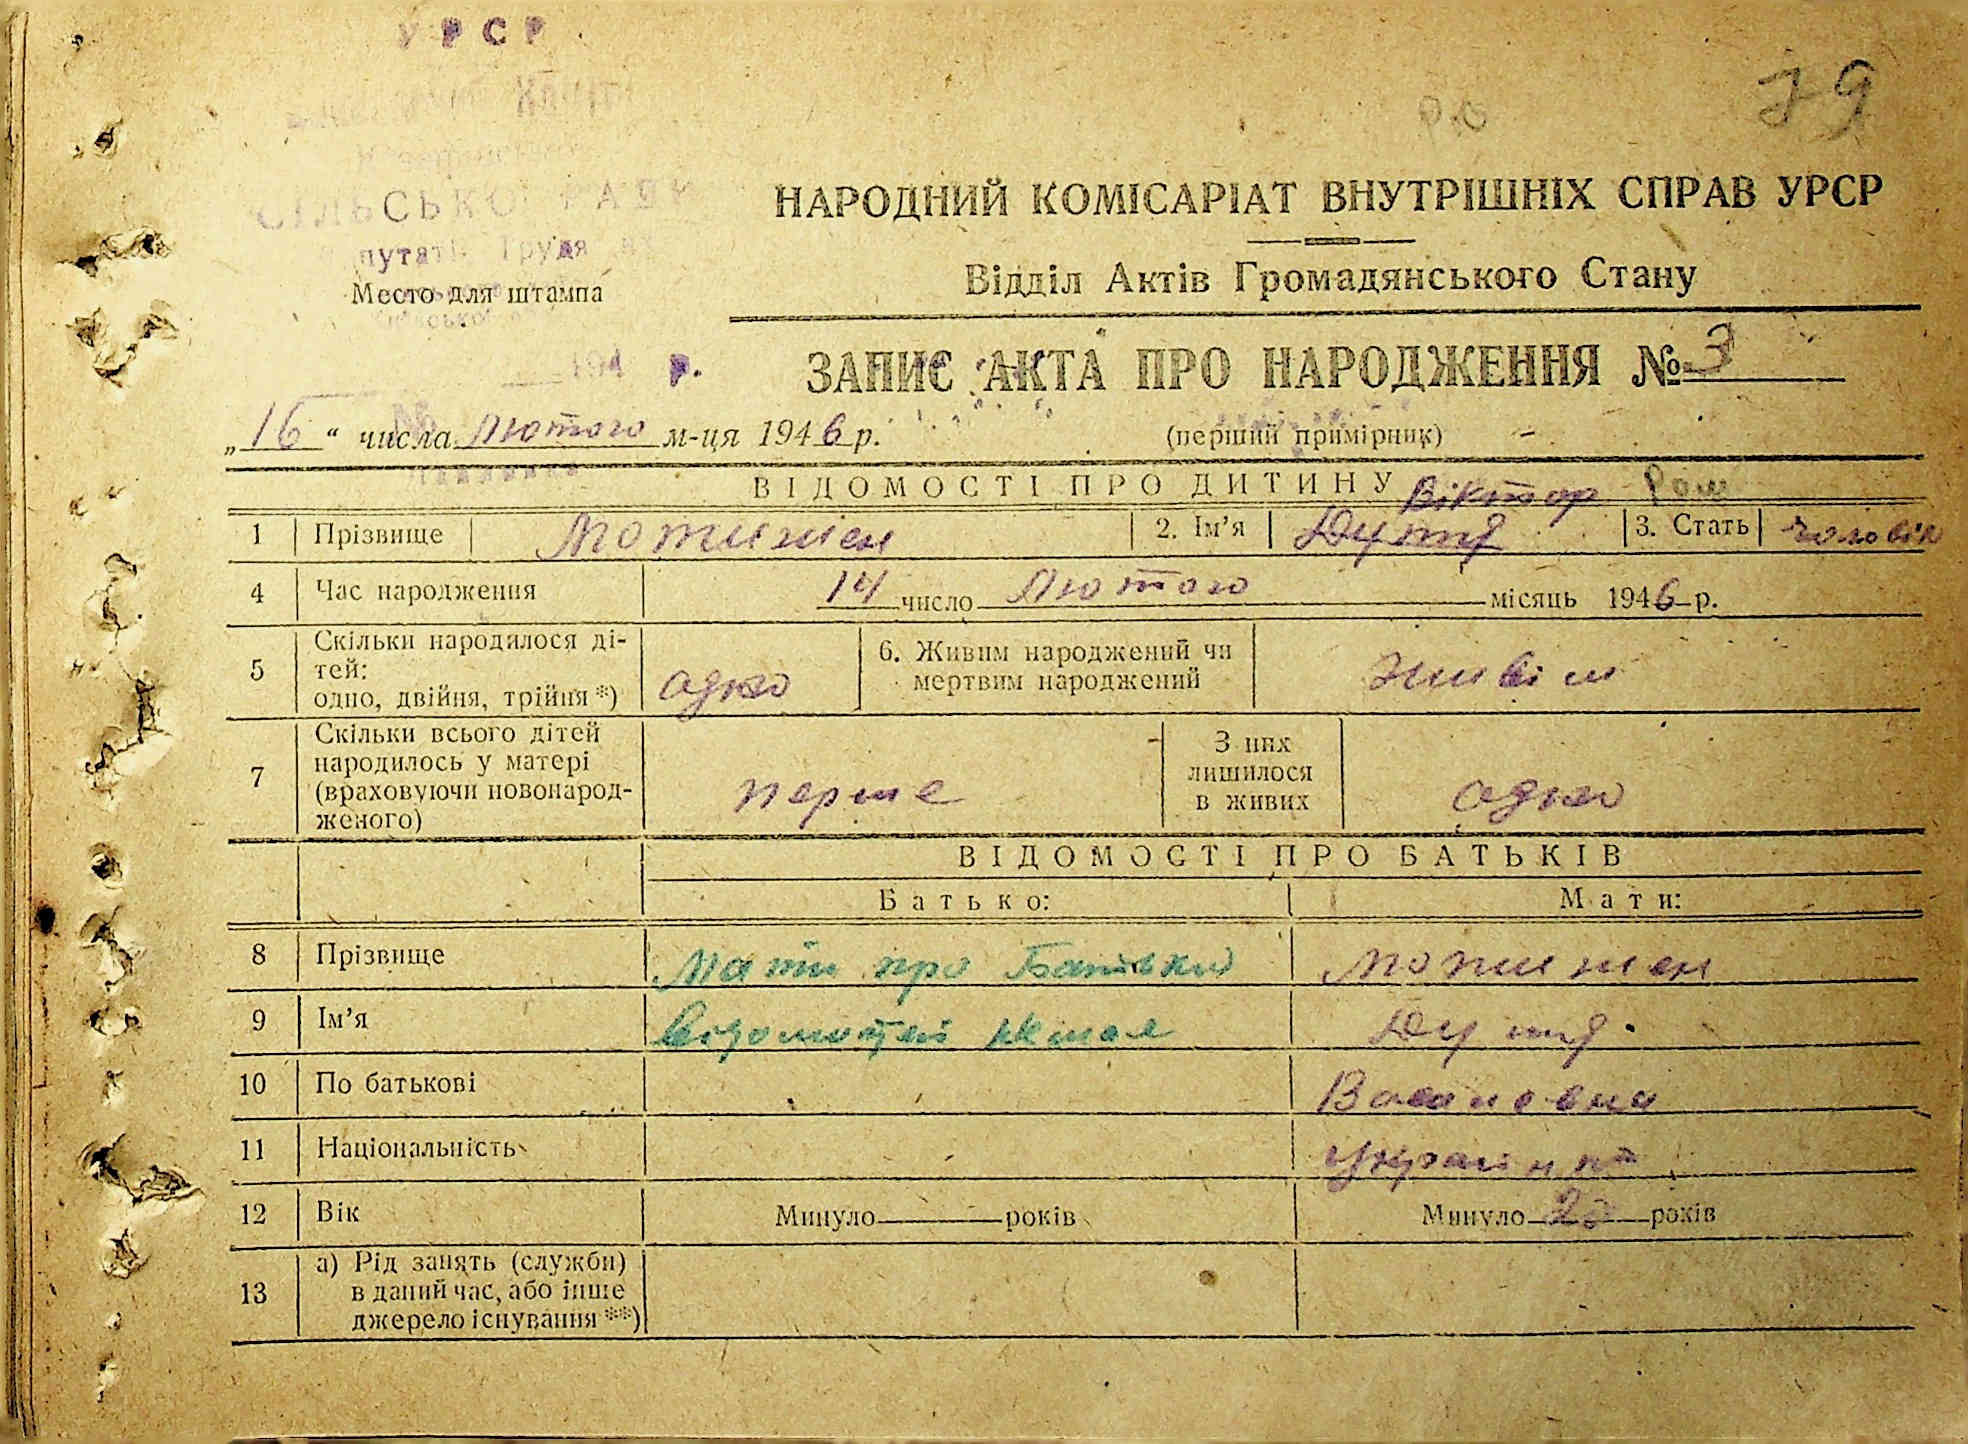 УРСР
79
НАРОДНИЙ КОМІСАРІАТ ВНУТРІШНІХ СПРАВ УРСР
Відділ Актів Громадянського Стану
Место для штампа
194 р.
ЗАПИС АКТА ПРО НАРОДЖЕННЯ № 3
„16“ числа лютого м-ця 1946 р.
(перший примірник)
ВІДОМОСТІ ПРО ДИТИНУ
Віктор
1 Прізвище Мотижен 2. Ім’я 3. Стать чоловік
4 Час народження 14 число Лютого місяць 1946 р.
5 Скільки народилося ді-
тей:
одно, двійня, трійня *) одно
6. Живим народжений чи
мертвим народжений живім
7 Скільки всього дітей
народилось у матері
(враховуючи новонарод-
женого) перше
З них
лишилося
в живих одно
ВІДОМОСТІ ПРО БАТЬКІВ
Батько: Мати:
8 Прізвище Мати про Батька Мотижен
9 Ім’я відомостей немає
10 По батькові
11 Національність українка
12 Вік Минуло років Минуло років
13 а) Рід занять (служби)
в даний час, або інше
джерело існування **)